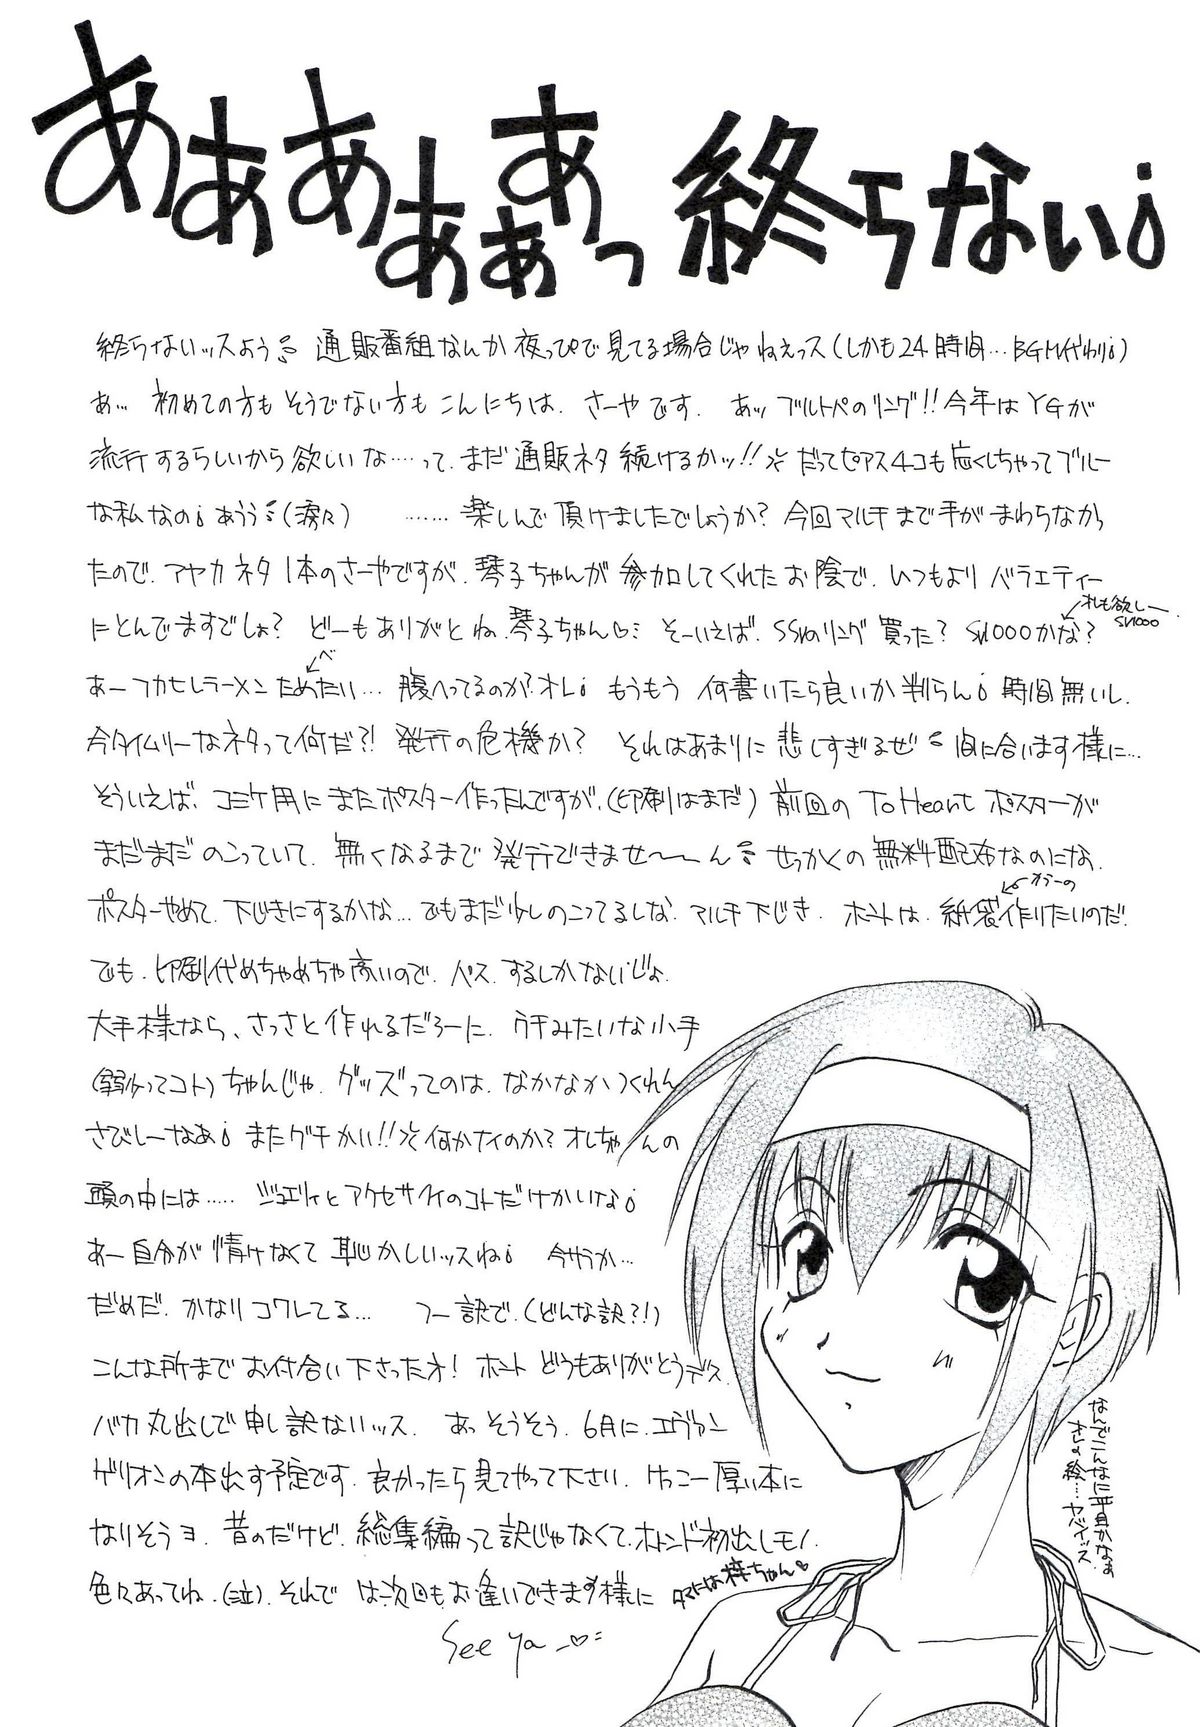 ああああああぁっ 終らない¡
終らないッスよう 通販番組なんか夜っぴで見てる場合じゃねえっス(しかも24時間…BGM代わり¡)
あ… 初めての方もそうでない方もこんにちは、さーやです。 あッ ブルトペのリング!!今年はYGが
流行するらしいから欲しいな……って、まだ通販ネタ続けるかッ!! だってピアス4コも亡くしちゃってブルー
な私なの¡ あうう(涙々) ……楽しんで頂けましたでしょうか?今回マルチまで手がまわらなかっ
たので、アヤカネタ1本のさーやですが、琴子ちゃんが参加してくれたお陰で、いつもよりバラエティー
にとんでますでしょ? どーもありがとね、琴子ちゃん♡ そーいえば、SSVのリング買った? SV1000かな?
オレも欲しー SV1000
あーフカヒレラーメンためたい… 腹へってるのか?オレ¡ もうもう何書いたら良いか判らん¡ 時間無いし、
べ
今タイムリーなネタって何だ?! 発行の危機か? それはあまりに悲しすぎるぜ 間に合います様に…
そういえば、コミケ用にまたポスター作ったんですが、(印刷はまだ)前回のToHeartポスターが
まだまだのこっていて、無くなるまで発行できませ〜〜ん せっかくの無料配布なのにな、
ポスターやめて、下じきにするかな…でもまだ少しのこってるしな、マルチ下じき、ホントは、紙袋作りたいのだ!
カラーの
でも、印刷代めちゃめちゃ高いので、パス、するしかないじょ、
大手様なら、さっさと作れるだろーに、ウチみたいな小手
(弱小ってコト)ちゃんじゃ、グッズってのは、なかなかつくれん
さびしーなあ¡ またグチかい!! 何かナイのか?オレちゃんの
頭の中には…‥ ジュエリィとアクセサリィのコトだけかいな¡
あー自分が情けなくて恥かしいッスね¡ 今サラか…
だめだ、かなりコワレてる… つー訳で、(どんな訳?!)
こんな所までお付合い下さった方! ホントどうもありがとうデス、
バカ丸出しで申し訳ないッス、 あっそうそう、6月に、エヴァン
ゲリオンの本出す予定です、良かったら見てやって下さい、けっこー厚い本に
なりそうヨ、昔のだけど、総集編って訳じゃなくて、ホトンド初出しモノ、
色々あってね、(泣)、それでは次回もお逢いできます様に
See Ya
タマには梓ちゃん♡
なんでこんなに平耳かなぁ
オレの絵…ヤバイッス、